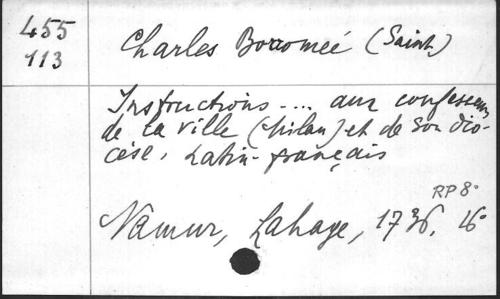 455
113
Charles Borromée (Saint)
Instructions .... aux confesseurs
de la ville (Milan) et de son dio-
cèse, Latin-français
RP 8°
Namur, Lahaye, 1736, 16°